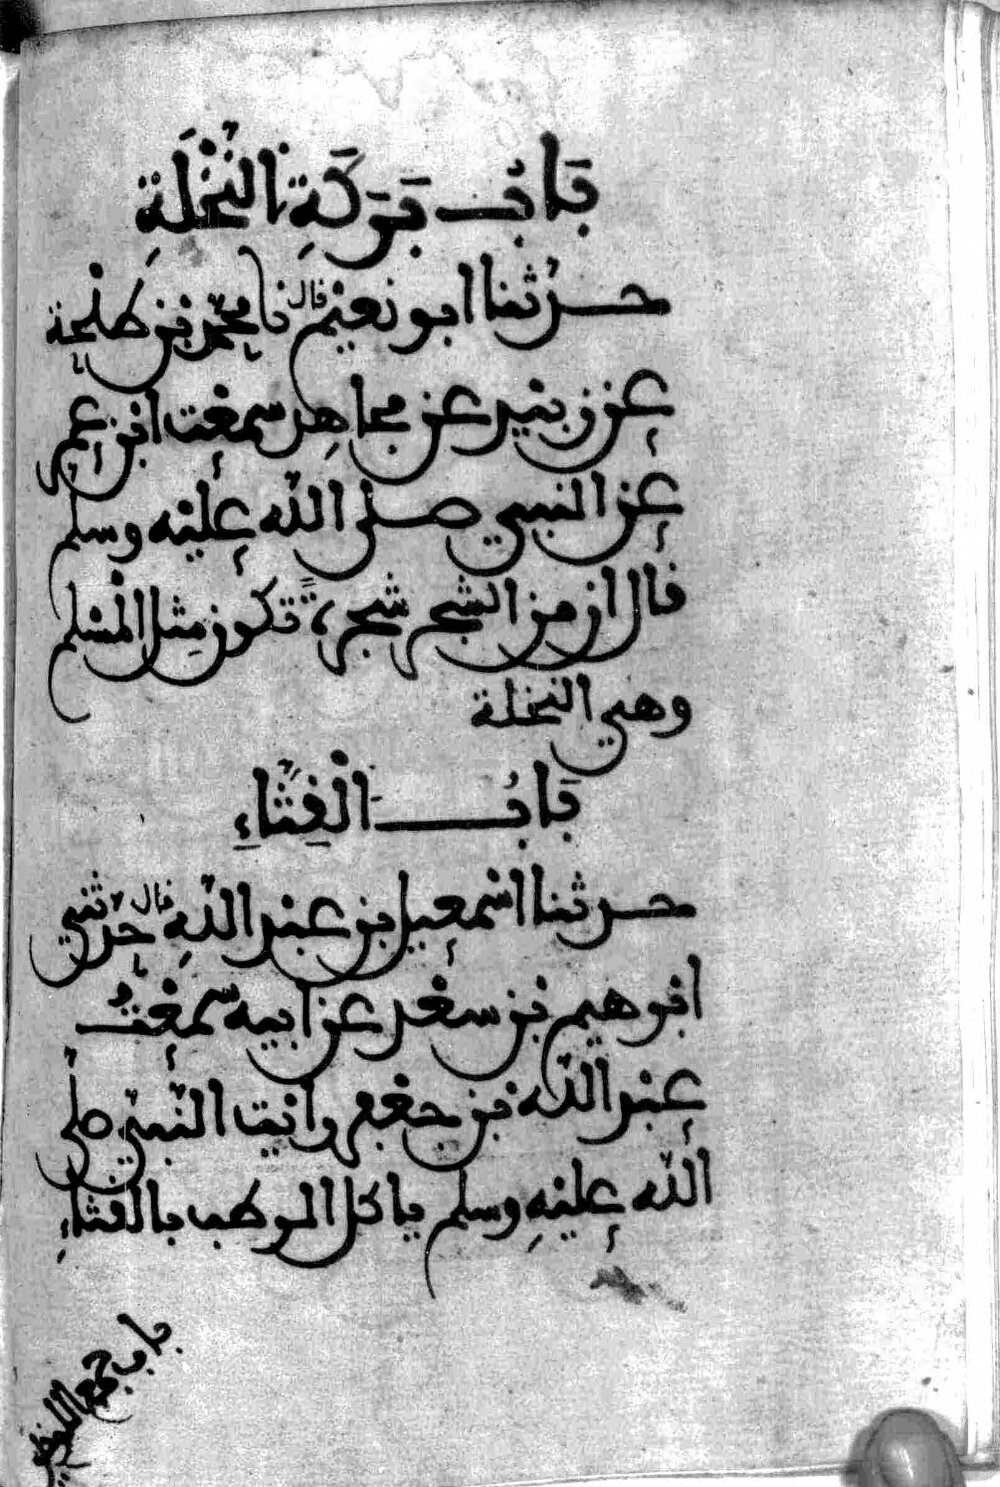 بَابُ بَرَكَةِ النَّخْلَةِ
حدثنا ابو نعيم قال نا محمد بن طلحة
عن زبيد عن مجاهد سمعت ابن عمر
عن النبي صلى الله عليه وسلم
قال ان من الشجر شجرة تكون مثل المسلم
وهي النخلة
بَابُ الْقِثَّاءِ
حدثنا اسمعيل بن عبد الله قال حدثني
ابرهيم بن سعد عن ابيه سمعتُ
عبد الله بن جعفر رايت النبي صلى
الله عليه وسلم ياكل الرطب بالقثاء
باب جمع اللونين